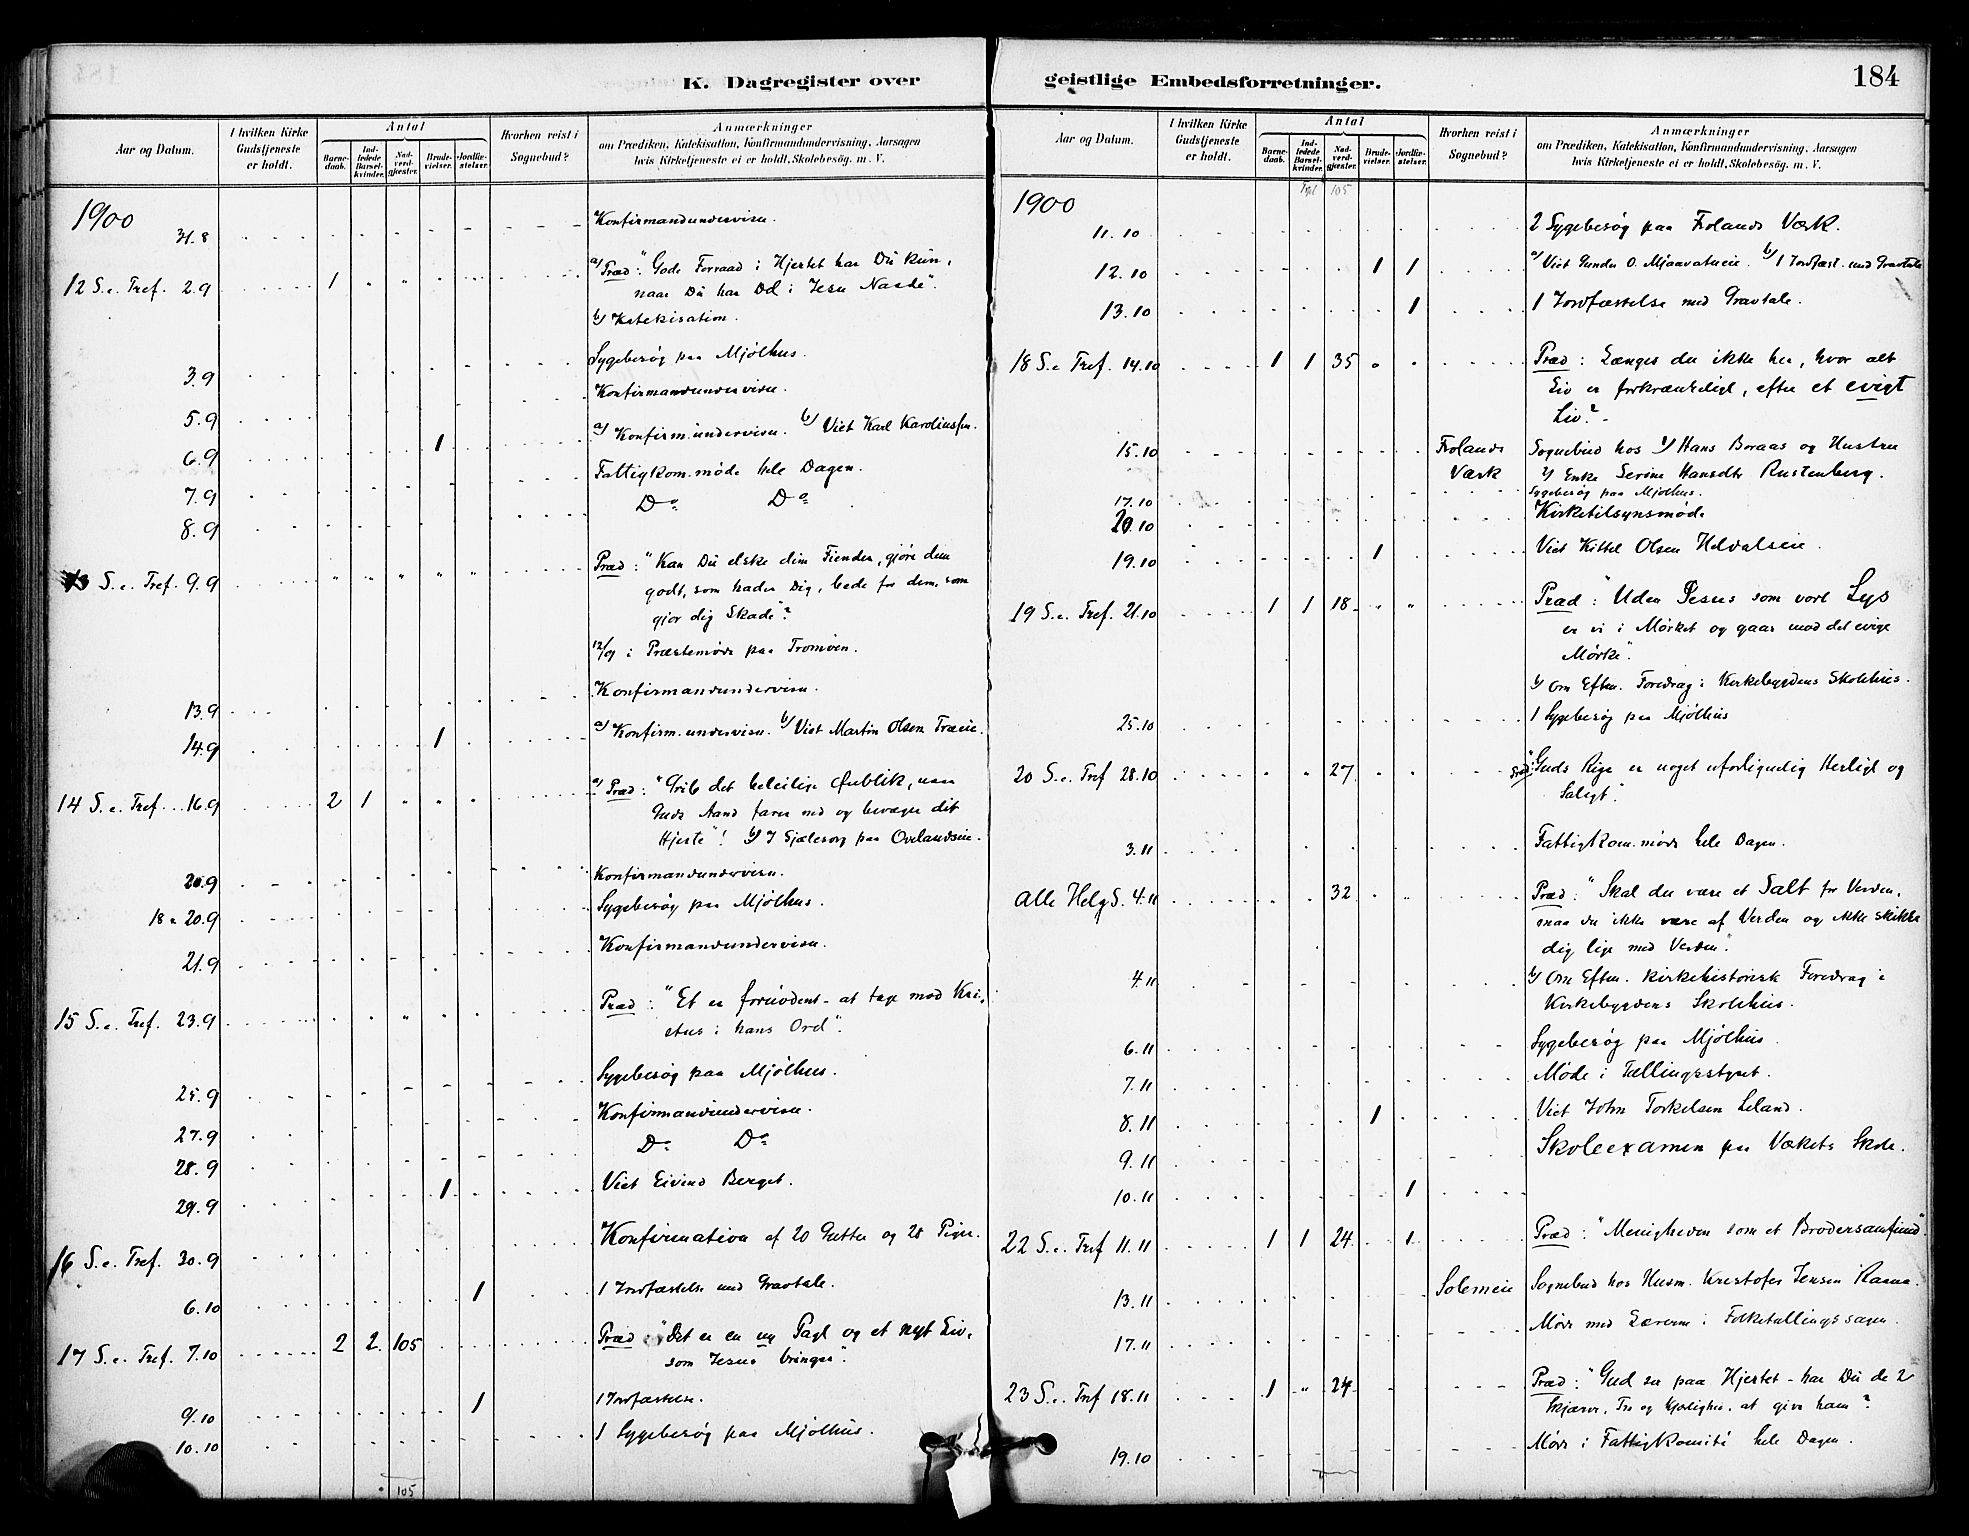 K. Dagregister over
Aar og Datum.
I hvilken Kirke Gudstjeneste er holdt.
Antal
Barne-daab.
Ind-ledede Barsel-kvinder.
Nad-verd-gjæster.
Brude-vielser.
Jordfæ-stelser.
Hvorhen reist i Sognebud?
Anmærkninger
om Prædiken, Katekisation, Konfirmandundervisning, Aarsagen
hvis Kirketjeneste ei er holdt, Skolebesøg. m. V.
1900
31.8 Konfirmandundervisn.
12 S. e. Tref. 2.9 1 " " a/ Præd: "Gode Forraad i Hjertet har Du kun,
naar Du har Del i Jesu Naade".
b/ Katekisation.
3.9 Sygebesøg paa Mjølhus.
5.9 Konfirmandundervisn.
6.9 1 a/ Konfirm.undervisn. b/ Viet Karl Karoliussen.
7.9 Fattigkom.møde hele Dagen.
8.9 Do Do
13 S. e. Tref. 9.9 " " " " " Præd: "Kan Du elske dine Fiender, gjøre dem
godt, som hader Dig, bede for dem, som
gjør dig Skade"?
12/9 i Præstemøde paa Tromøen.
13.9 Konfirmandundervisn.
14.9 1 a/ Konfirm.undervisn. b/ Viet Martin Olsen Træeie.
14 S. e. Tref. 16.9 2 1 " " " a/ Præd: "Grib det beleilige Øieblik, naar
Guds Aand farer ned og bevæger dit
Hjerte"! b/ I Sjælesorg paa Ovelandseie.
20.9 Konfirmandundervisn.
18 & 20.9 Sygebesøg paa Mjølhus.
21.9 Konfirmandundervisn.
15 S. e. Tref. 23.9 Præd: "Et er fornødent - at tage mod Kri-
stus i hans Ord".
25.9 Sygebesøg paa Mjølhus.
27.9 Konfirmandundervisn.
28.9 Do Do
29.9 1 Viet Eivind Berget.
16 S. e. Tref. 30.9 Konfirmation af 20 Gutter og 28 Piger.
6.10 1 1 Jordfæstelse med Gravtale.
17 S. e. Tref. 7.10 2 2 105 Præd: "Det er en ny Pagt og et nyt Liv,
som Jesus bringer".
9.10 1 1 Jordfæstelse.
10.10 1 Sygebesøg paa Mjølhus.
105
geistlige Embedsforretninger.
184
Aar og Datum.
I hvilken Kirke Gudstjeneste er holdt.
Antal
Barne-daab.
Ind-ledede Barsel-kvinder.
Nad-verd-gjæster.
Brude-vielser.
Jordfæ-stelser.
Hvorhen reist i Sognebud?
Anmærkninger
om Prædiken, Katekisation, Konfirmandundervisning, Aarsagen
hvis Kirketjeneste ei er holdt, Skolebesøg. m. V.
105
1900
11.10 2 Sygebesøg paa Frolands Værk.
12.10 1 1 a/ Viet Gunder O. Mjaavatneie. b/ 1 Jordfæst. med Gravtale
13.10 1 1 Jordfæstelse med Gravtale.
18 S. e Tref. 14.10 1 1 35 " Præd: Længes du ikke her, hvor alt
Liv er forkrænkeligt, efter et evigt
Liv? -
15.10 Frolands Værk Sognebud hos 1/ Hans Boraas og Hustru
2/ Enke Serine Hansdtr Rustenberg.
17.10 Sygebesøg paa Mjølhus.
20.10 Kirketilsynsmøde
19.10 1 Viet Kittel Olsen Heldalseie.
19 S. e. Tref. 21.10 1 1 18 " " Præd: "Uden Jesus som vort Lys
er vi i Mørket og gaar mod det evige
Mørke".
b/ Om Eften. Foredrag i Kirkebygdens Skolehus.
25.10 1 Sygebesøg paa Mjølhus
20 S. e. Tref 28.10 " " 27 Præd: "Guds Rige er noget uforligneligt Herligt og
Saligt".
3.11 Fattigkom.møde hele Dagen.
Alle Helg S. 4.11 32 Præd: "Skal du være et Salt for Verden,
maa du ikke være af Verden og ikke skikke
dig lige med Verden".
4.11 b/ Om Eften. Kirkehistorisk Foredrag i
Kirkebygdens Skolehus.
6.11 Sygebesøg paa Mjølhus.
7.11 Møde i Tællingsstyret.
8.11 1 Viet John Torkelsen Leland.
9.11 Skoleexamen paa Værkets Skole.
10.11 1
22 S. e. Tref 11.11 1 1 24 1 Præd: "Menigheden som et Brodersamfund".
13.11 Solemeie Sognebud hos Husm. Kristofer Jensen
17.11 Møde med Lærerne i Folketællingssagen.
23 S. e. Tref 18.11 1 " 24 Præd: "Gud ser paa Hjertet - har Du de 2
Skjærve, Tro og Kjærlighed, at give ham"?
19.10 Møde i Fattigkomité hele Dagen.